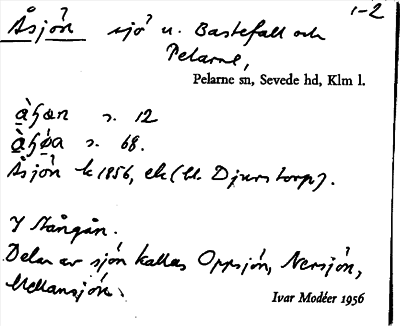 1-2
Åsjön sjö n. Bastefall och
Pelarne,
Pelarne sn, Sevede hd, Klm l.
s. 12
s. 68.
Åsjön k 1856, ek (bl. Djurstorp).
Y Stångån.
Delar av sjön kallas Oppsjön, Nersjön,
Mellansjön.
Ivar Modéer 1956